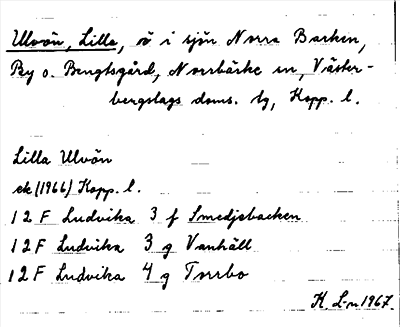 Ulvön, Lilla, ö i sjön Norra Barken,
By o. Bengtsgård, Norrbärke sn, Väster-
bergslags doms. tg, Kopp. l.
Lilla Ulvön
ek (1966) Kopp. l.
12 F Ludvika 3 f Smedjebacken
12 F Ludvika 3 g Vanhäll
12 F Ludvika 4 g Torrbo
K L-n 1967.